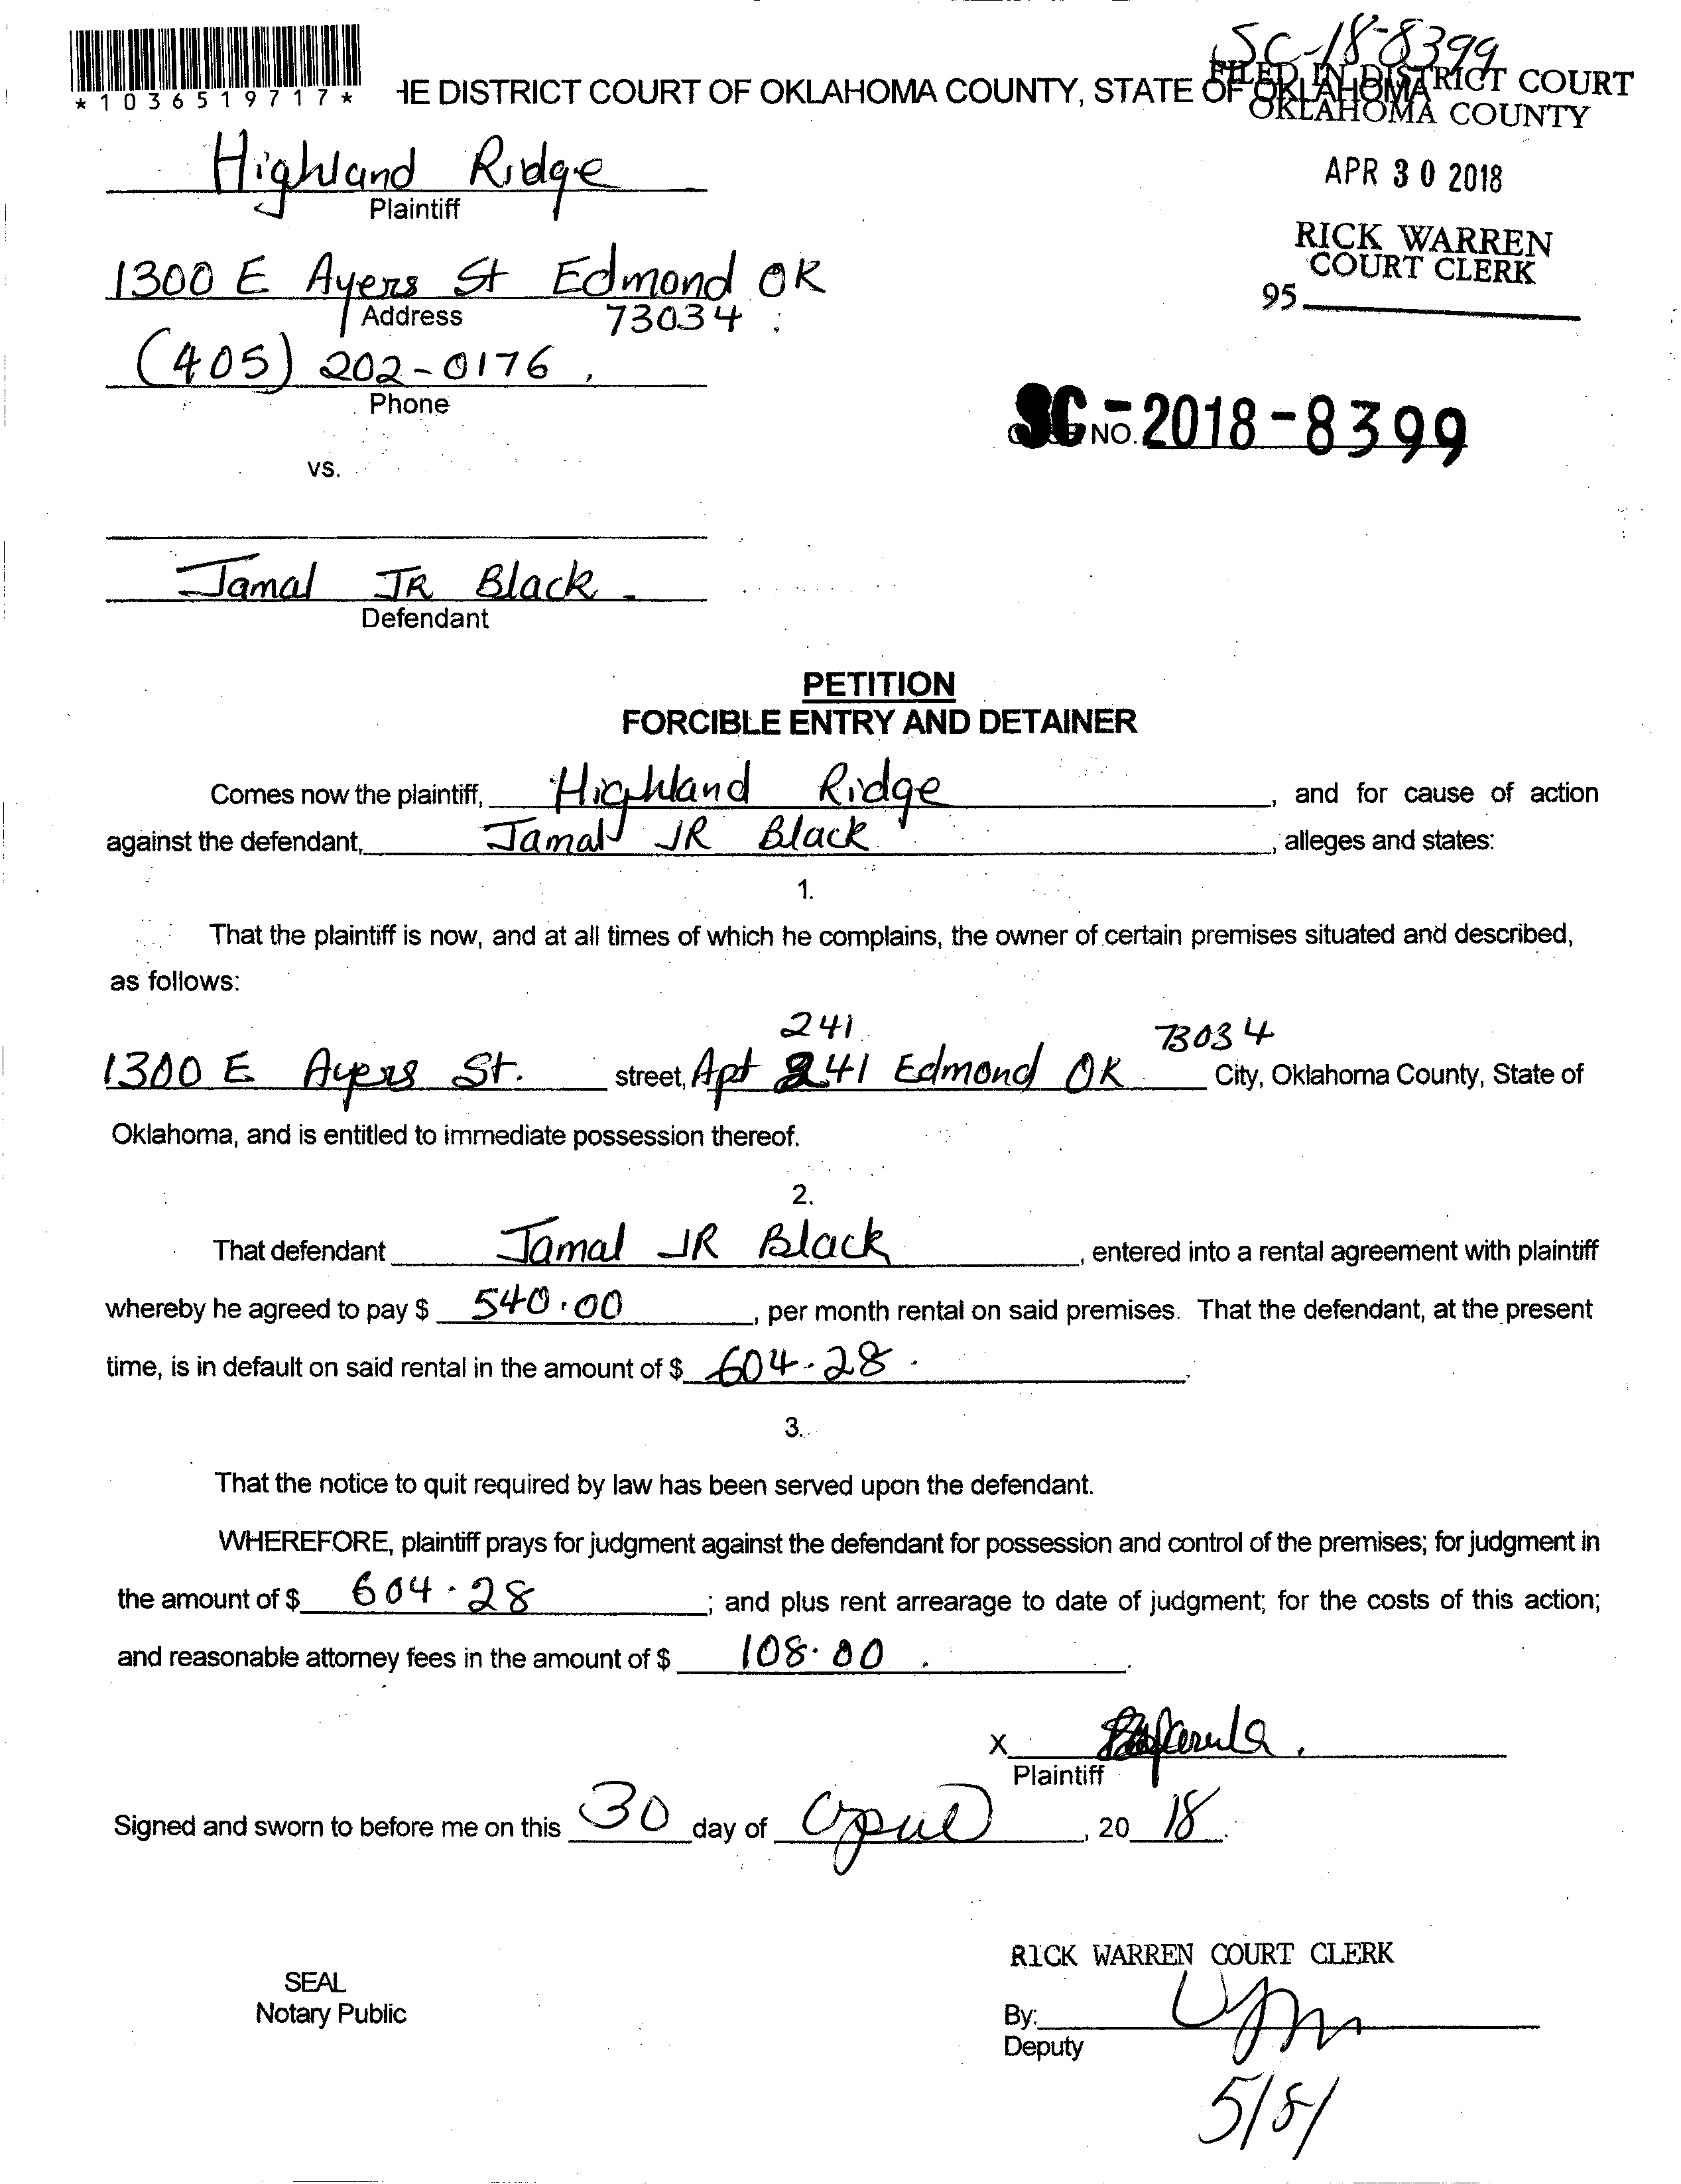 SC-18-8399
*1036519717*
HE DISTRICT COURT OF OKLAHOMA COUNTY, STATE OF OKLAHOMA
FILED IN DISTRICT COURT
OKLAHOMA COUNTY
Highland Ridge
Plaintiff
APR 30 2018
RICK WARREN
COURT CLERK
95
1300 E Ayers St Edmond OK
Address 73034
(405) 202-0176
Phone
SC-2018-8399
NO.
vs.
Jamal JR Black
Defendant
PETITION
FORCIBLE ENTRY AND DETAINER
Comes now the plaintiff, Highland Ridge, and for cause of action
against the defendant, Jamal JR Black, alleges and states:
1.
That the plaintiff is now, and at all times of which he complains, the owner of certain premises situated and described,
as follows:
241 73034
1300 E Ayers St. street, Apt 241 Edmond OK City, Oklahoma County, State of
Oklahoma, and is entitled to immediate possession thereof.
2.
That defendant Jamal JR Black, entered into a rental agreement with plaintiff
whereby he agreed to pay $ 540.00, per month rental on said premises. That the defendant, at the present
time, is in default on said rental in the amount of $ 604.28.
3.
That the notice to quit required by law has been served upon the defendant.
WHEREFORE, plaintiff prays for judgment against the defendant for possession and control of the premises; for judgment in
the amount of $ 604.28; and plus rent arrearage to date of judgment; for the costs of this action;
and reasonable attorney fees in the amount of $ 108.00.
X
Plaintiff
Signed and sworn to before me on this 30 day of April, 20 18.
RICK WARREN COURT CLERK
SEAL
Notary Public
By:
Deputy
5/8/